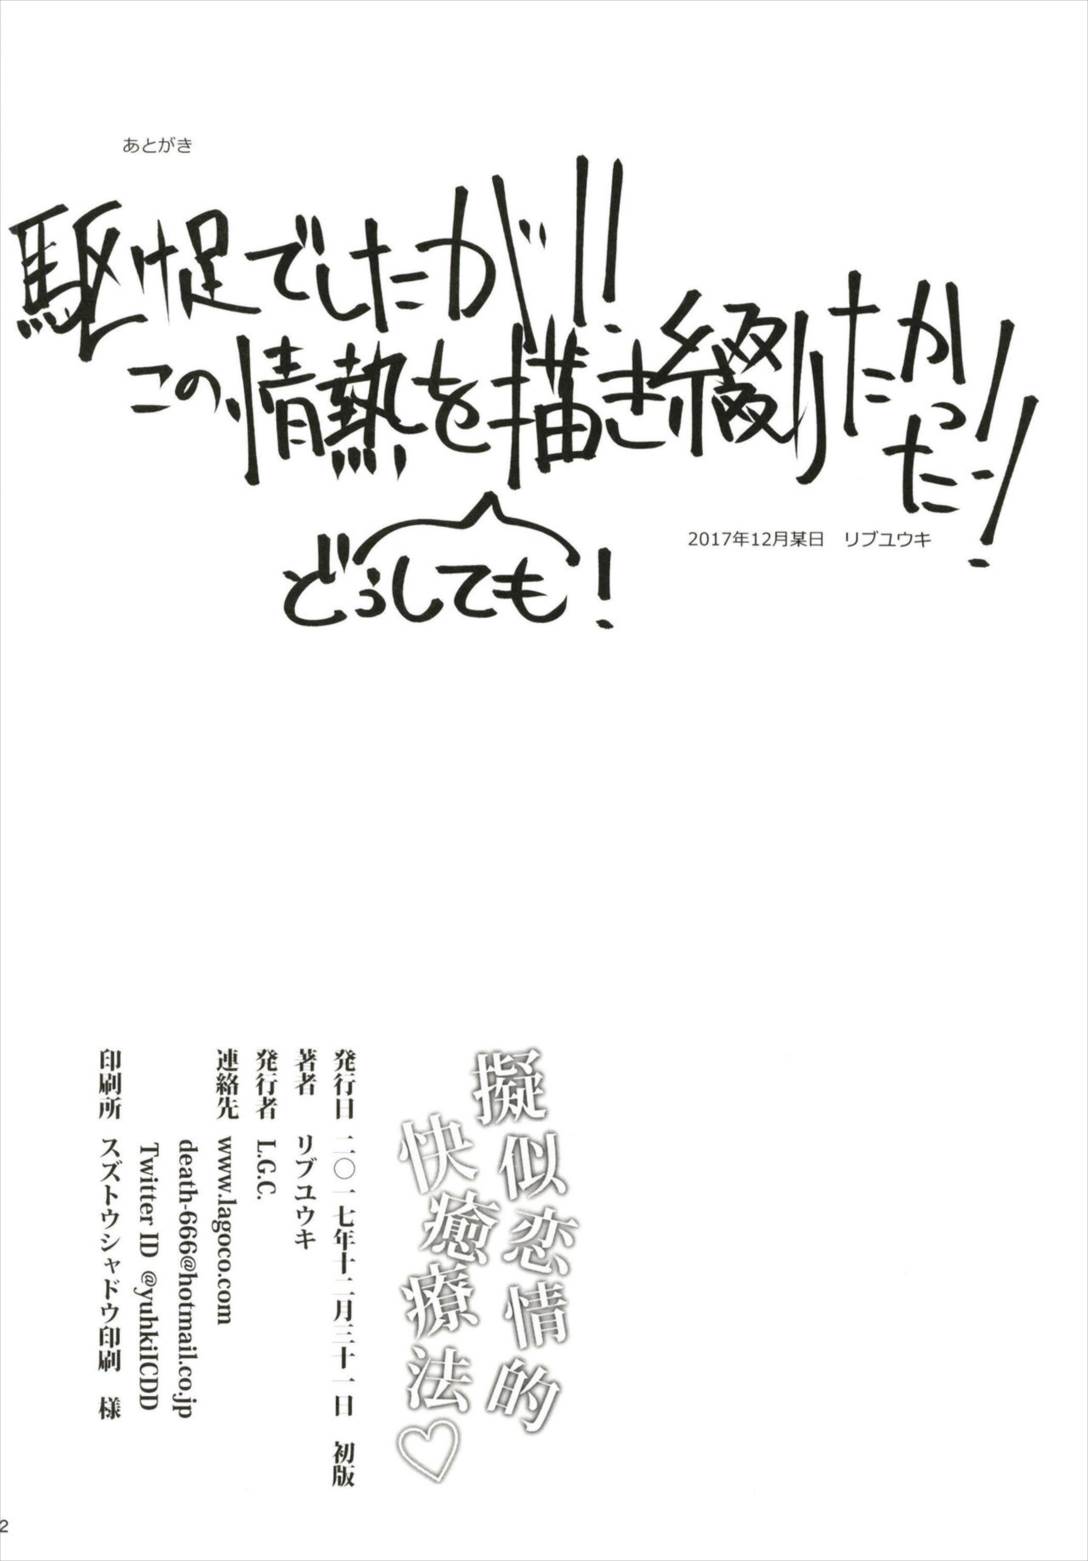 あとがき
駆け足でしたが!!
この情熱を描き綴りたかったッ!!
どぅしても!
2017年12月某日　リブユウキ
擬似恋情的
快癒療法♡
発行日 二〇一七年十二月三十一日　初版
著者　リブユウキ
発行者 L.G.C.
連絡先 www.lagoco.com
death-666@hotmail.co.jp
Twitter ID @yuhkiICDD
印刷所 スズトウシャドウ印刷　様
2